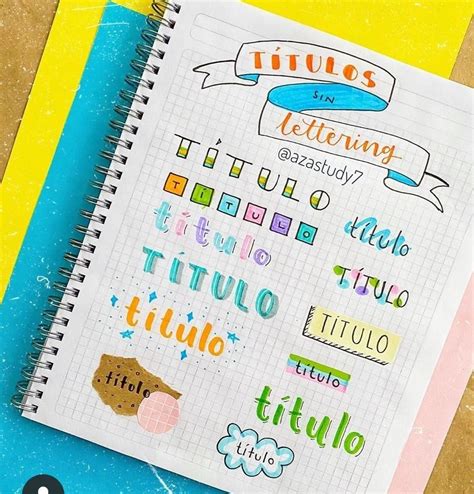 TÍTULOS
SIN
lettering
@azastudy7
TÍTULO
TÍTULO
título
TÍTULO
título
.título
título
TÍTULO
TÍTULO
título
título
título